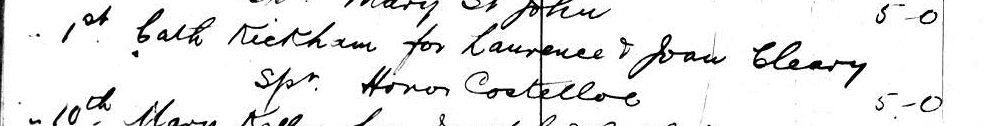 Mary St John 5-0
" 1st Cath Kickham for Laurence & Joan Cleary
Spr. Honor Costelloe 5-0
" 10th Mary